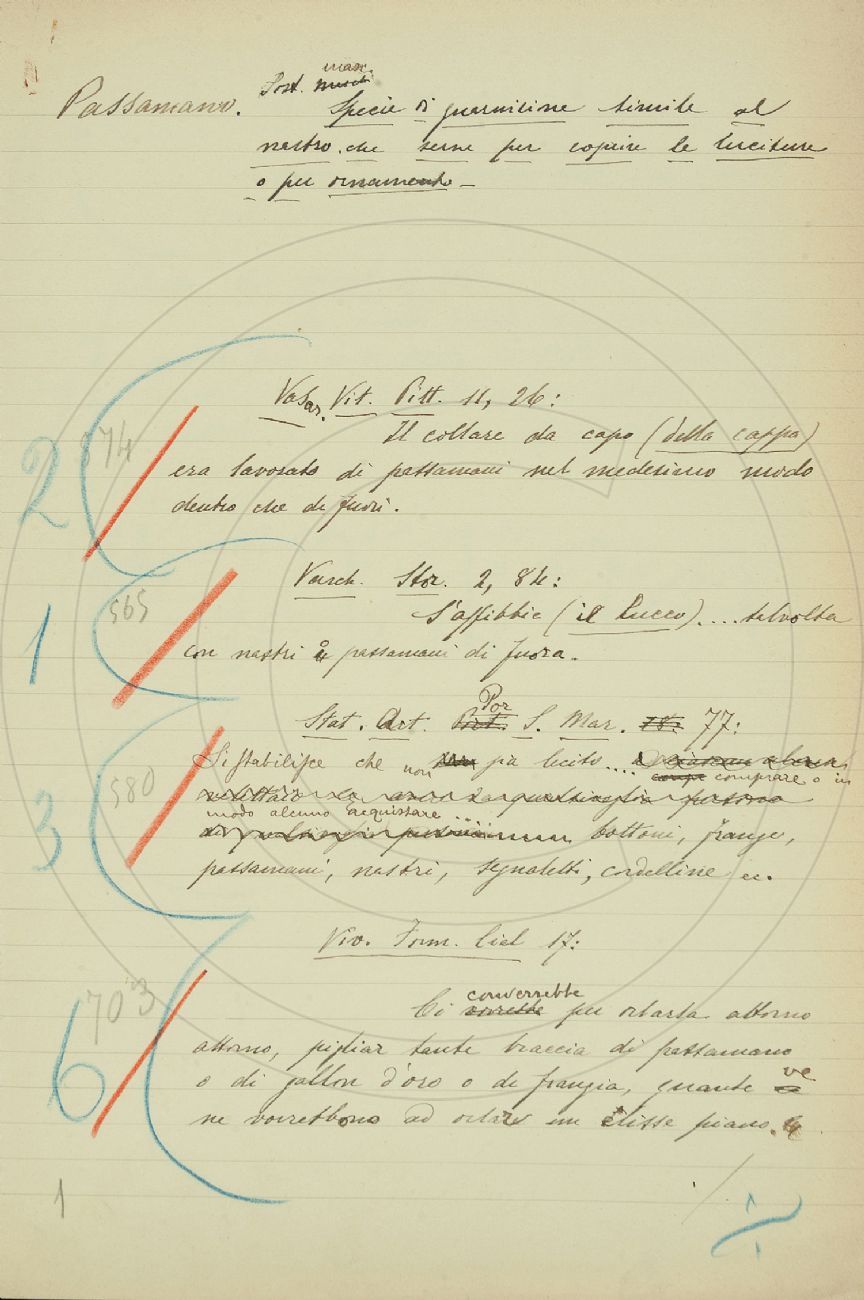 Passamano. Sost. masc.
Specie di guarnizione simile al
nastro che serve per coprire le cuciture
o per ornamento.
Vasar. Vit. Pitt. 11, 26:
Il collare da capo (della cappa)
era lavorato di passamani nel medesimo modo
dentro che di fuori.
2 874
Varch. Stor. 2, 84:
S'affibbia (il Lucco) .... talvolta
con nastri o passamani di fuora.
1 565
Stat. Art. Por S. Mar. 77:
Si stabilisce che non sia lecito .... comprare o in
modo alcuno acquistare ....
bottoni, frange,
passamani, nastri, segnaletti, cordelline ec.
3 580
Viv. Form. Ciel 17:
Ci converrebbe per orlarla attorno
attorno, pigliar tante braccia di passamano
o di gallon d'oro o di frangia, quante ve
ne vorrebbono ad orlare un elisse piano.
6 703
1